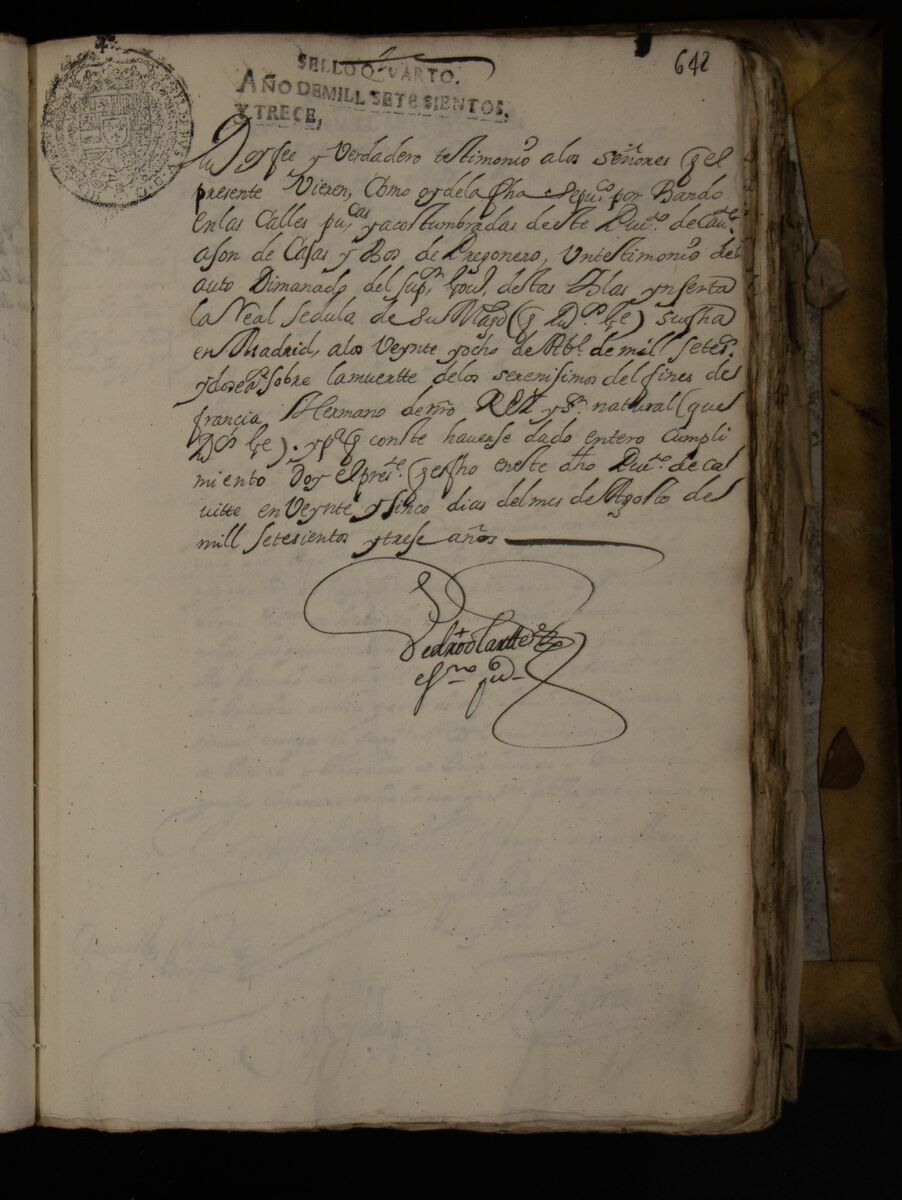 642
SELLO QVARTO.
AÑO DE MILL SETESIENTOS,
Y TRECE,
Doy fee y Verdadero testimonio a los señores q̃ el
presente Vieren, Como oy dela fha se pu.co por Bando
en las Calles pu.cas y acostumbradas deste Pu.to de Cau.te
a son de Caxas y Bos de Pregonero, Un testimonio del
auto Dimanado del Sup.r Gou.o destas Yslas ynserta
la Real Sedula de Su Magd (q̃ D.s g̃e) su fha
en Madrid, a los Veynte y ocho de Ab.l de mill setes.s
y dose a.s sobre la muertte delos serenisimos delfines de
francia Hermano de nr̃o REY y S.r natural (que
D.s g̃e). y pa q̃ conste hauerse dado entero Cumpli
miento Doy el pres.te q̃ es fho en este dho Pu.to de Ca
uitte en Veynte y sinco dias del mes de Agosto de
mill setesientos y trese años
Pedro
ess.no pu.co